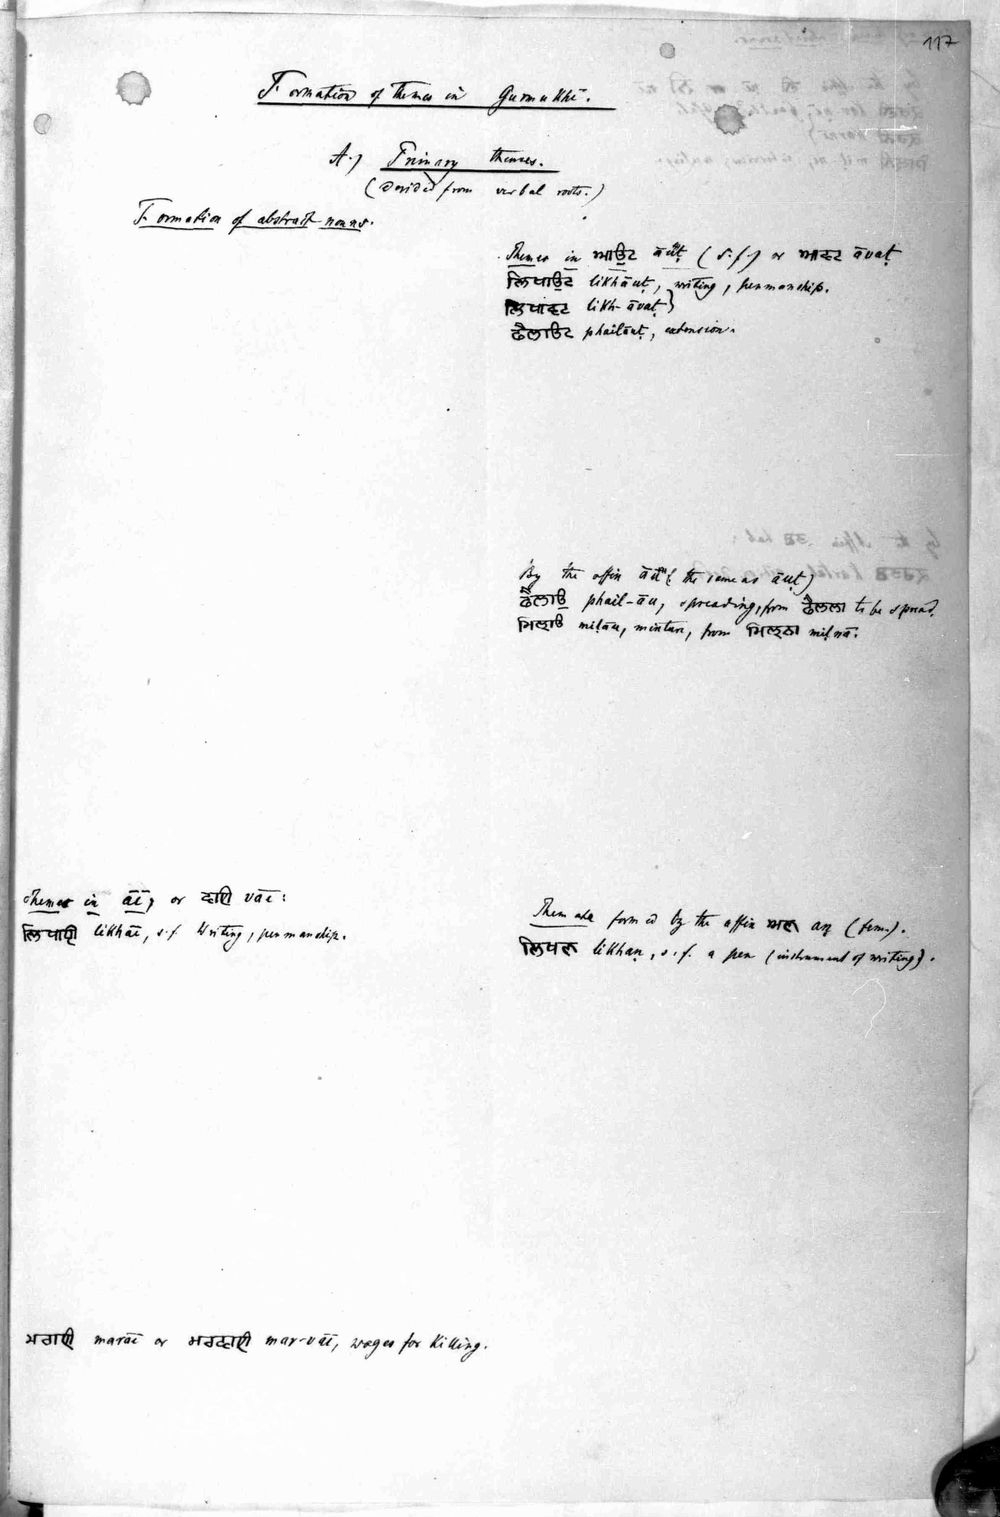 117
Formation of themes in Gurmukhī.
A.) Primary themes.
(Derived from verbal roots.)
Formation of abstract nouns.
Themes in ਆਉਟ āuṭ (s.f.) or ਆਵਟ āvaṭ
ਲਿਖਾਉਟ likhāuṭ, writing, penmanship.
ਲਿਖਾਵਟ likh-āvaṭ}
ਫੈਲਾਉਟ phailāuṭ, extension.
By the affix āu (the same as āuṭ)
ਫੈਲਾਉ phail-āu, spreading, from ਫੈਲਣਾ to be spread.
ਮਿਲਾਉ milāu, mixture, from ਮਿਲਣਾ milṇā.
Themes in āī, or ਵਾਈ vāī:
ਲਿਖਾਈ likhāī, s.f. Writing, penmanship.
Themata formed by the affix ਅਣ aṇ (fem.).
ਲਿਖਣ likhaṇ, s.f. a pen (instrument of writing).
ਮਰਾਈ marāī or ਮਰਵਾਈ mar-vāī, wages for killing.